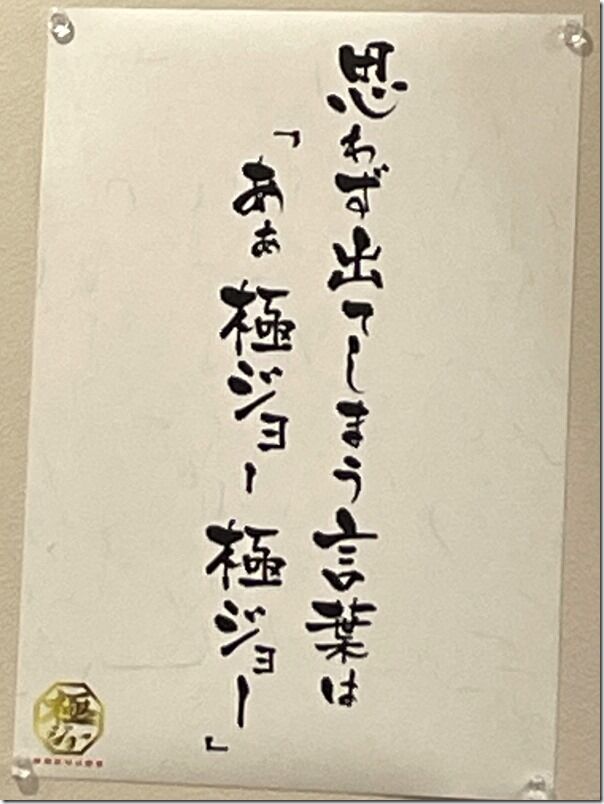 思わず出てしまう言葉は
「あぁ 極ジョー 極ジョー」
極
ジョー